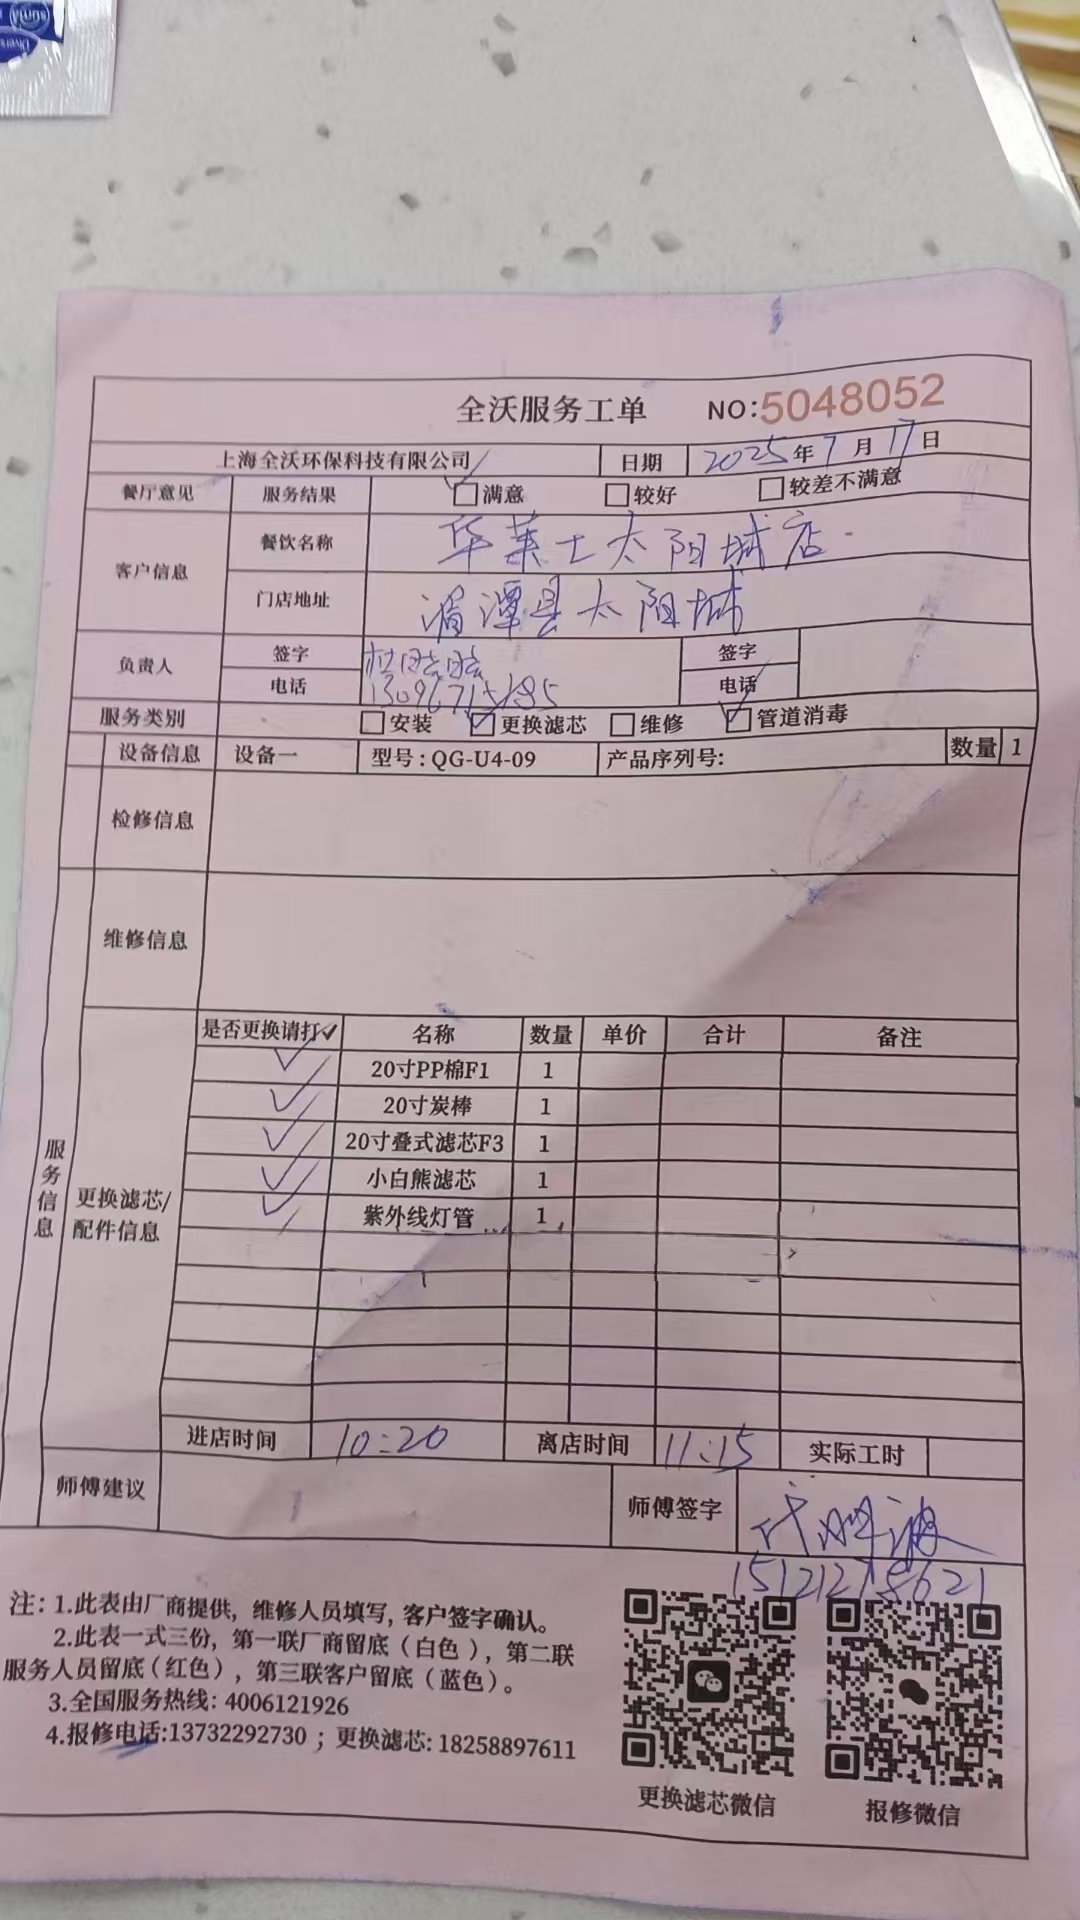 全沃服务工单 NO:5048052
上海全沃环保科技有限公司 日期 2025年7月17日
餐厅意见 服务结果 满意 较好 较差不满意
客户信息 餐饮名称 华莱士太阳城店
门店地址 湄潭县太阳城
负责人 签字 签字
电话 电话
服务类别 安装 更换滤芯 维修 管道消毒
设备信息 设备一 型号:QG-U4-09 产品序列号: 数量 1
检修信息
维修信息
服务信息
更换滤芯/配件信息
是否更换请打✓ 名称 数量 单价 合计 备注
✓ 20寸PP棉F1 1
✓ 20寸炭棒 1
✓ 20寸叠式滤芯F3 1
✓ 小白熊滤芯 1
✓ 紫外线灯管 1
进店时间 10:20 离店时间 11:15 实际工时
师傅建议 师傅签字
注: 1.此表由厂商提供, 维修人员填写, 客户签字确认。
2.此表一式三份, 第一联厂商留底(白色), 第二联
服务人员留底(红色), 第三联客户留底(蓝色)。
3.全国服务热线: 4006121926
4.报修电话:13732292730 ; 更换滤芯: 18258897611
更换滤芯微信 报修微信